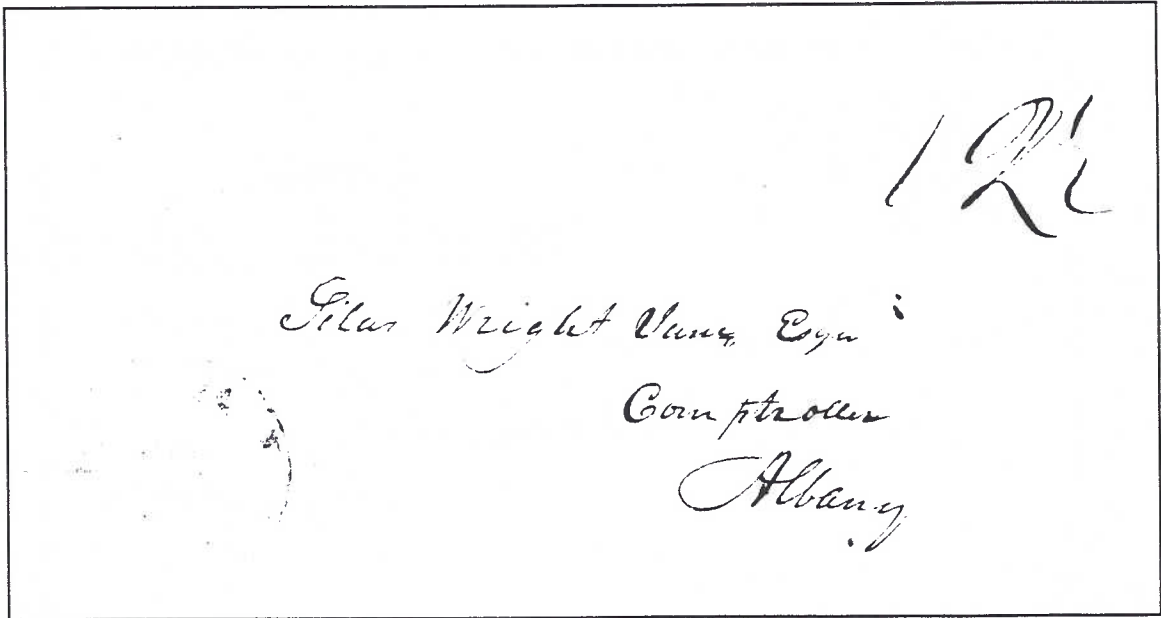 12½
Silas Wright Junr, Esqr
Comptroller
Albany